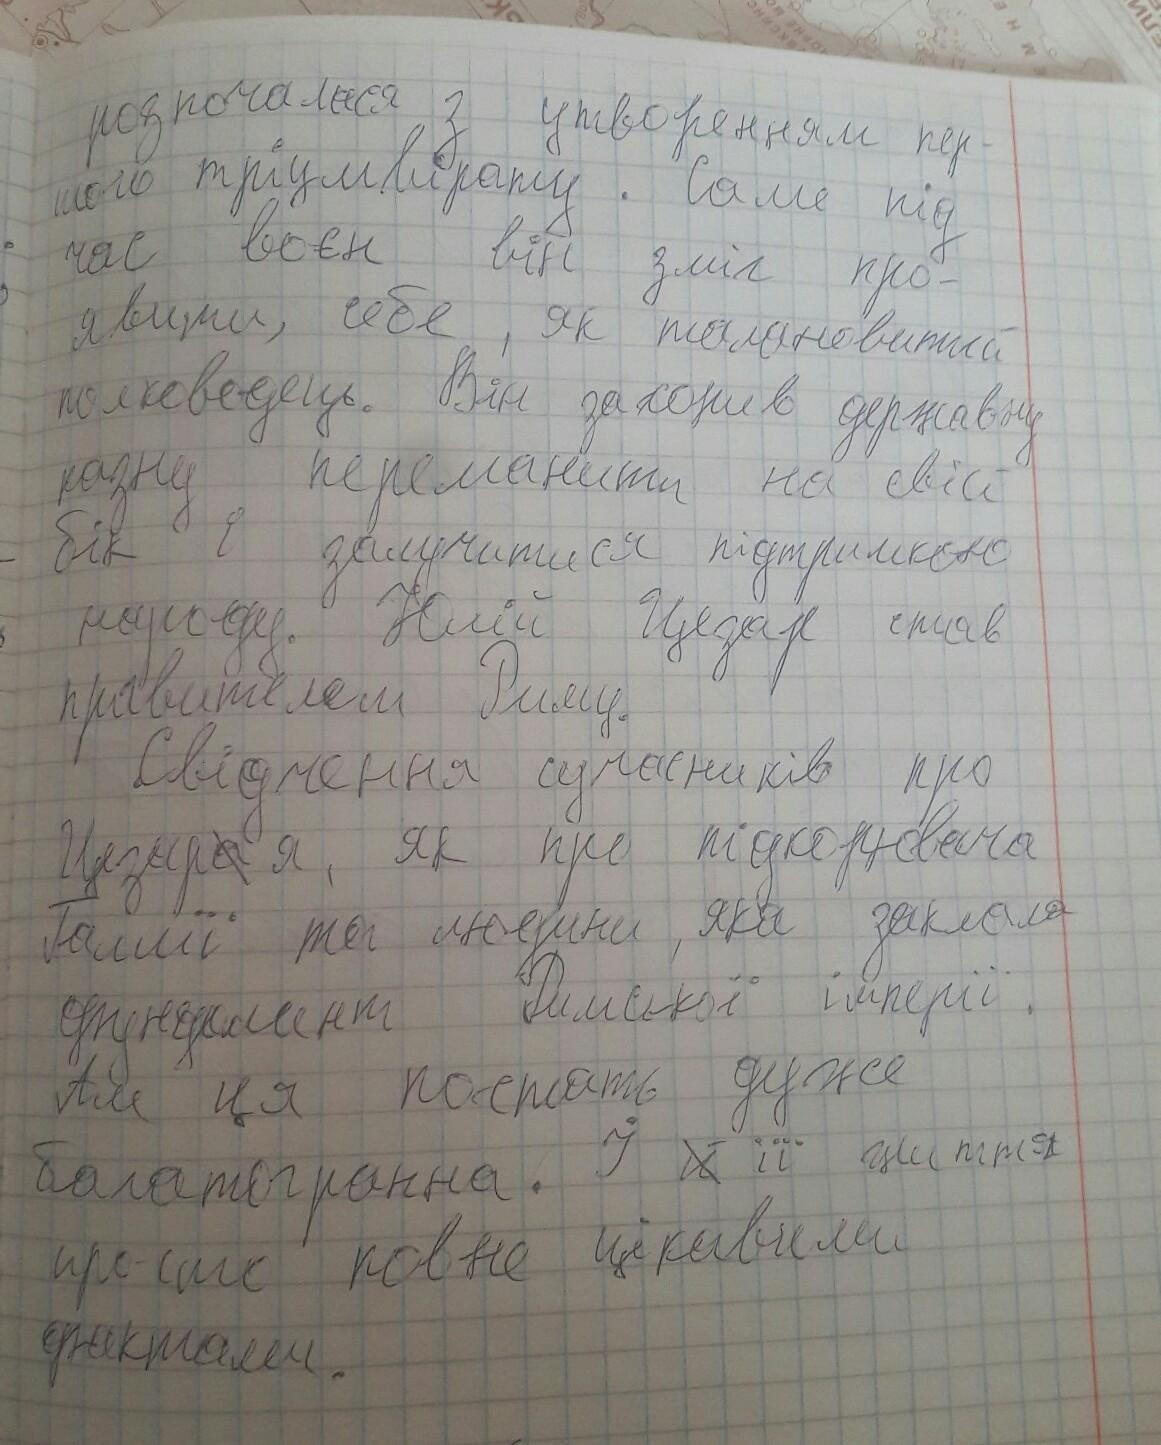 розпочалася з утворенням пер-
шого тріумвірату. Саме під
час воєн він зміг про-
явити, себе, як талановитий
полководець. Він захопив державну
казну переманити на свій
бік і залучитися підтримкою
народу. Юлій Цезар став
правителем Риму.
Свідчення сучасників про
Цезаря, як про підкорювача
Галлії та людини, яка заклала
фундамент Римської імперії.
Але ця постать дуже
багатогранна. І її життя
просто повне цікавими
фактами.